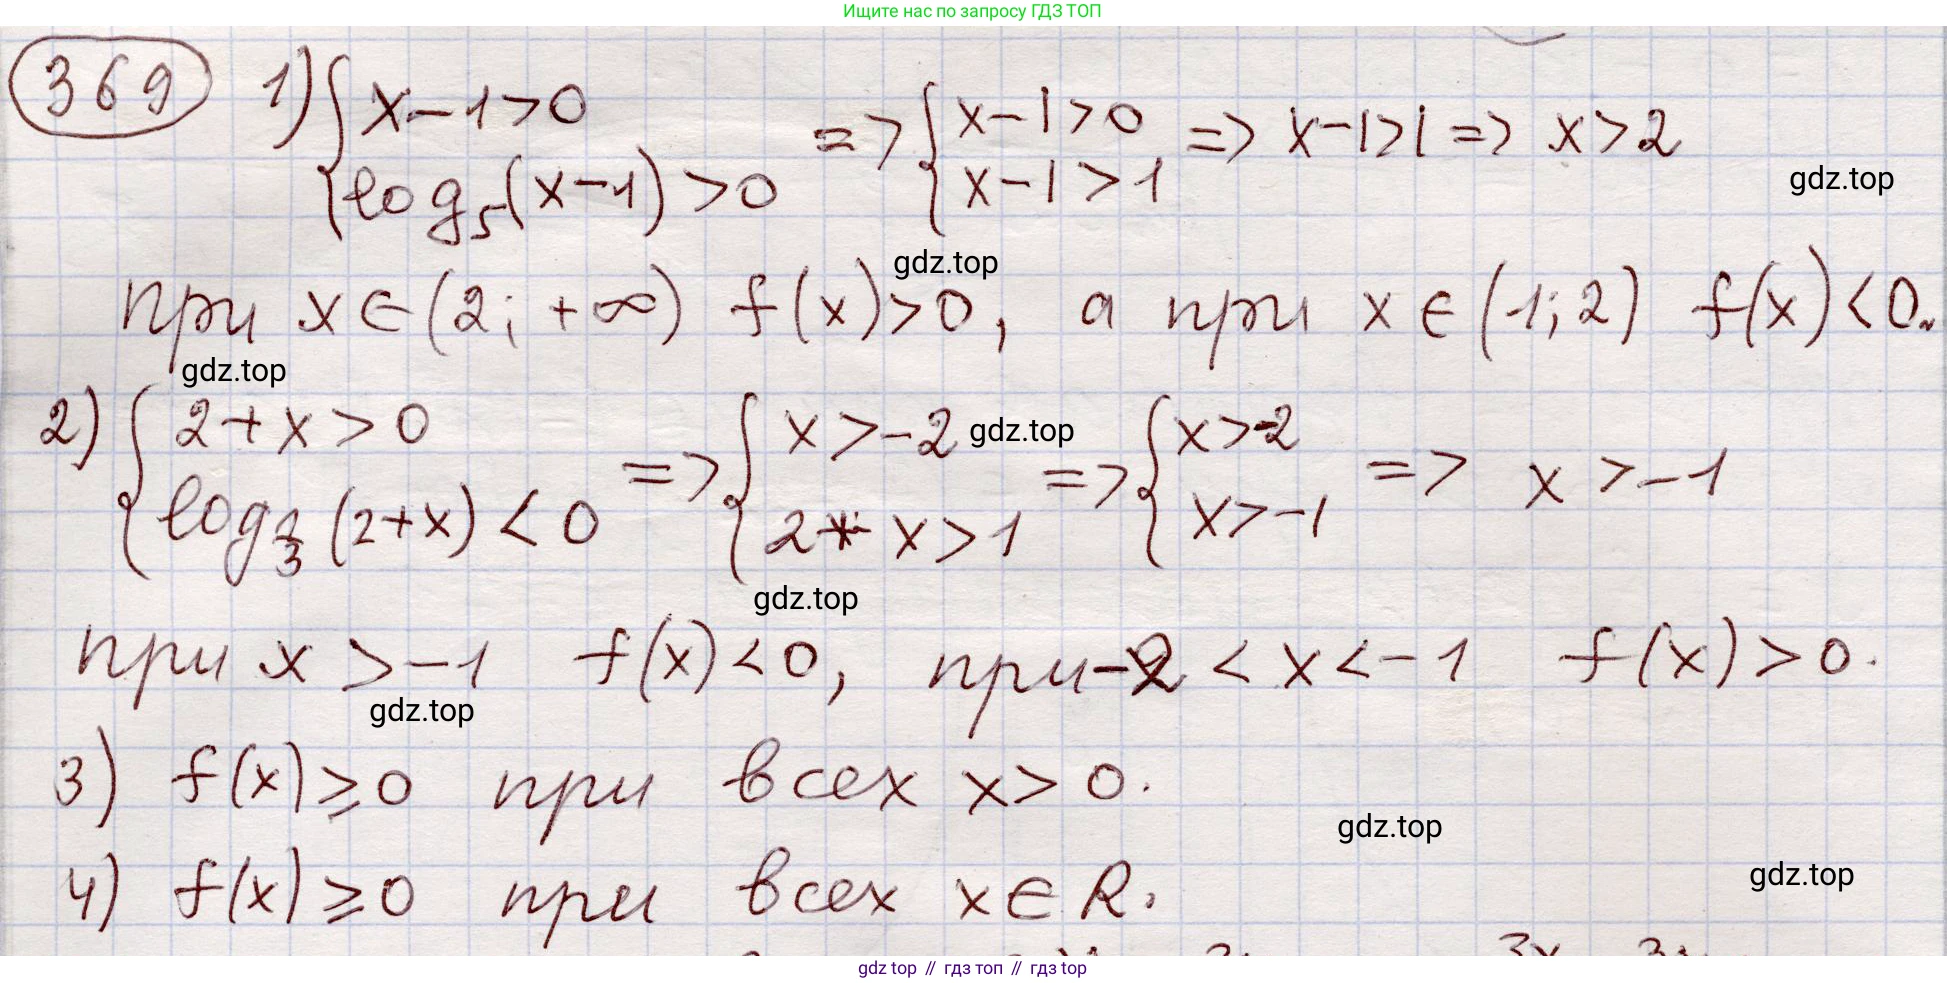 Ищите нас по запросу ГДЗ ТОП
369 1) { x-1>0 => { x-1>0 => x-1>1 => x>2
log₅(x-1)>0 x-1>1
gdz.top
gdz.top
при x∈(2; +∞) f(x)>0, а при x∈(1;2) f(x)<0.
gdz.top
2) { 2+x>0 => { x>-2 => { x>-2 => x>-1
gdz.top
log_{1/3}(2+x)<0 2+x>1 x>-1
gdz.top
при x>-1 f(x)<0, при -2<x<-1 f(x)>0.
gdz.top
3) f(x)≥0 при всех x>0.
gdz.top
4) f(x)≥0 при всех x∈R.
gdz.top
gdz top // гдз топ // gdz top